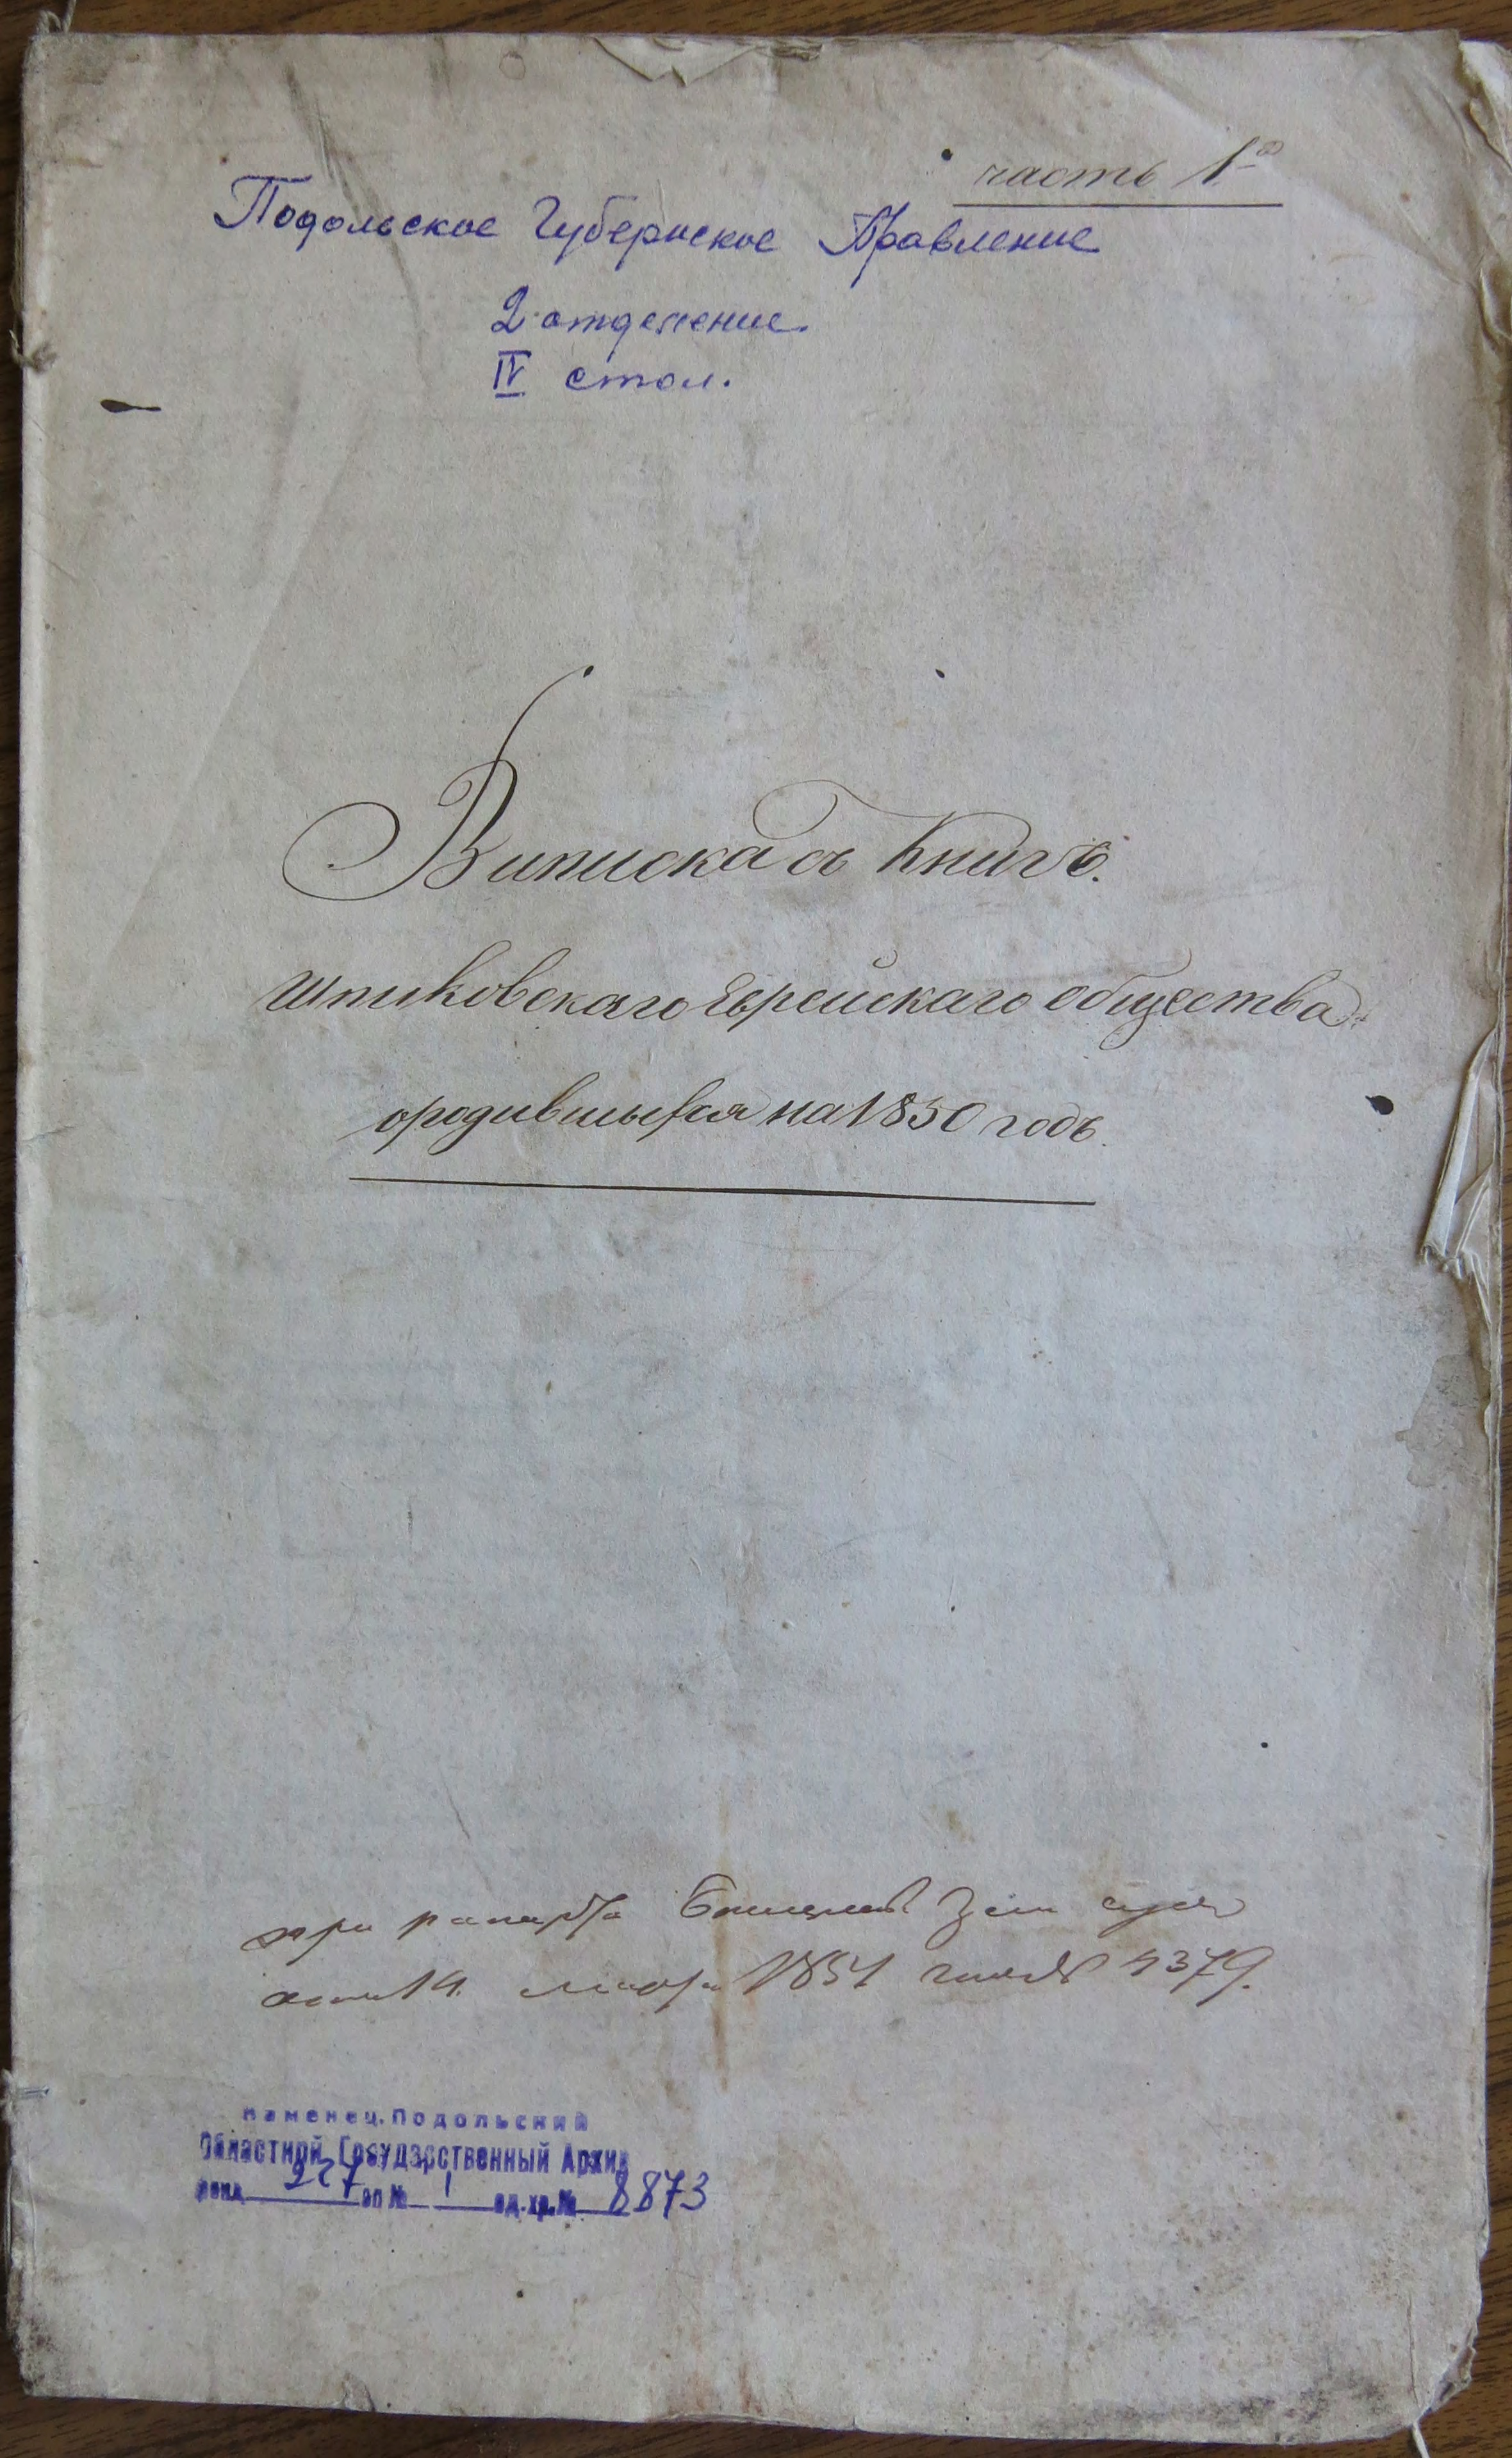 часть 1я
Подольское Губернское Правление
2 отделение.
IV стол.
Виписка съ Книгъ.
Шпиковскаго Еврейскаго общества
ородившыхся на 1850 годъ.
при рапорте Зем суда
1851
Каменец.Подольский
Областной Государственный Архив
фонд 227 оп № 1 ед.хр.№ 8873